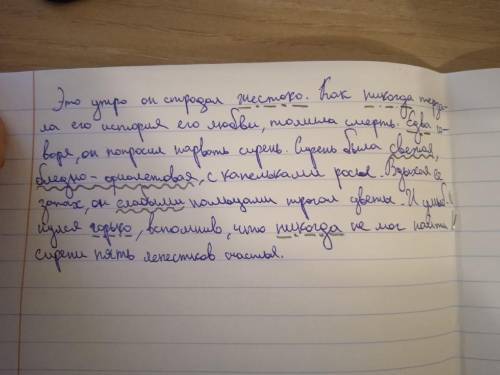 Это утро он страдал жестоко. Как никогда терза-
ла его история его любви, томила смерть. Едва го-
воря, он попросил нарвать сирень. Сирень была свежая,
бледно-фиолетовая, с капельками росы. Вдыхая её
запах, он слабыми пальцами трогал цветы. И улыб-
нулся горько, вспомнив, что никогда не мог найти в
сирени пять лепестков счастья.